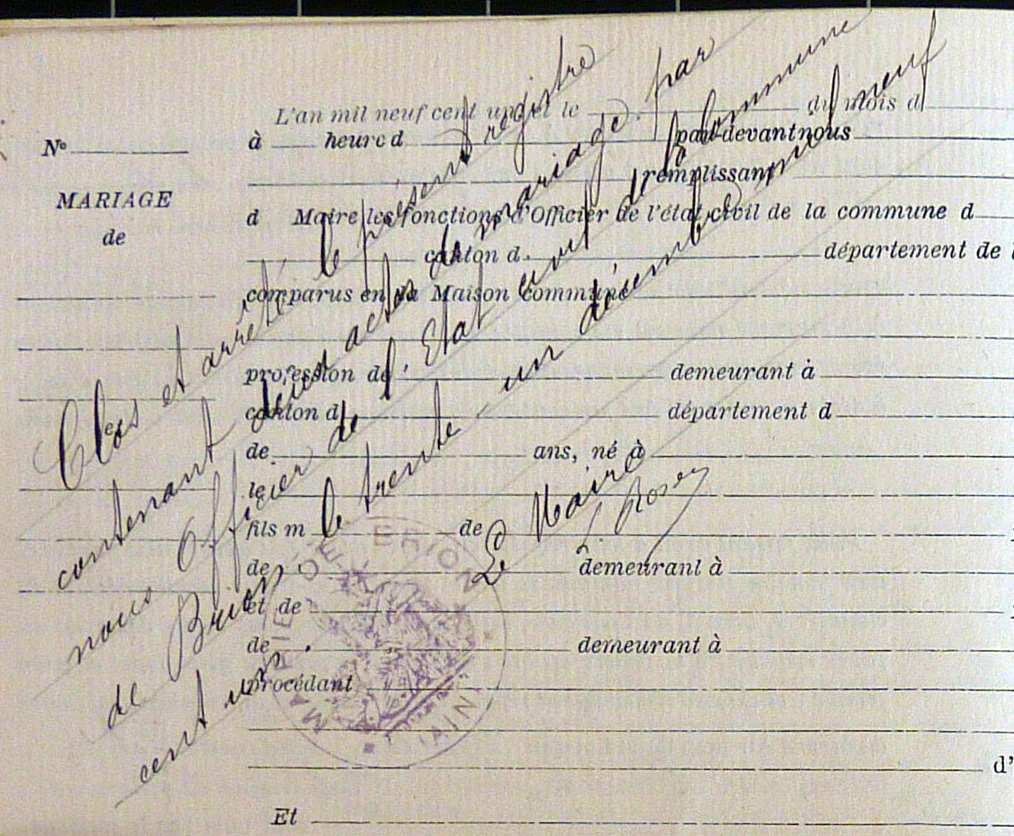 L'an mil neuf cent un et le du mois d
No à heure d par-devant nous
remplissant
MARIAGE
d Maire les fonctions d'Officier de l'état civil de la commune d
de
canton d département de l
comparus en la Maison commune
profession de demeurant à
canton d département d
de ans, né à
le
fils m de
de demeurant à
et de
de demeurant à
procédant
d'
Et
Clos et arrêté le présent registre
contenant deux actes de mariage par
nous Officier de l'Etat civil de la commune
de Brion, le trente-un décembre mil neuf
cent un.
Le Maire
L. Rosey
MAIRIE DE BRION
(AIN)